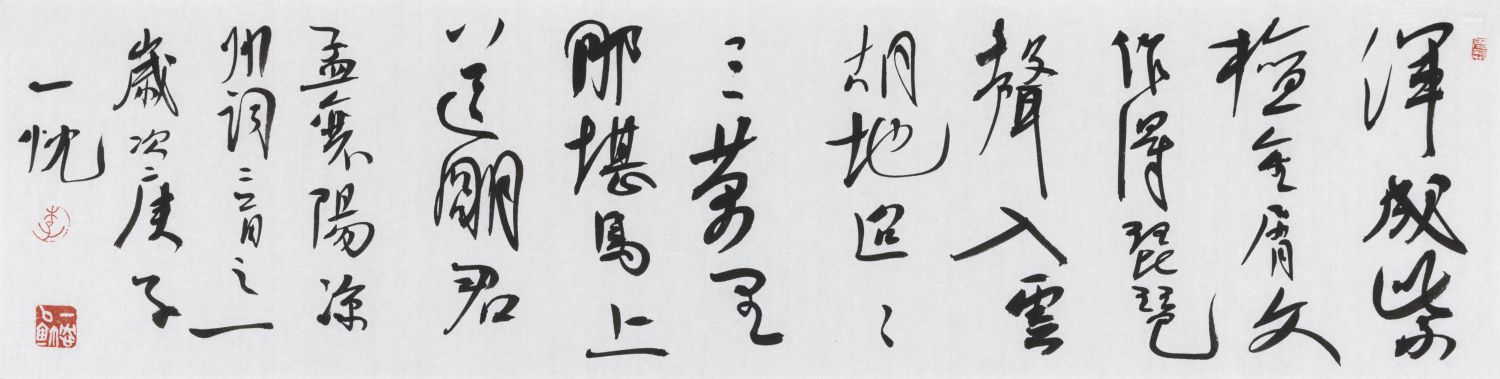 渾成紫
檀金屑文
作得琵琶
聲入雲
胡地迢〻
三萬里
那堪馬上
送明君
孟襄陽涼
州詞二首之一
歲次庚子
一忱
李